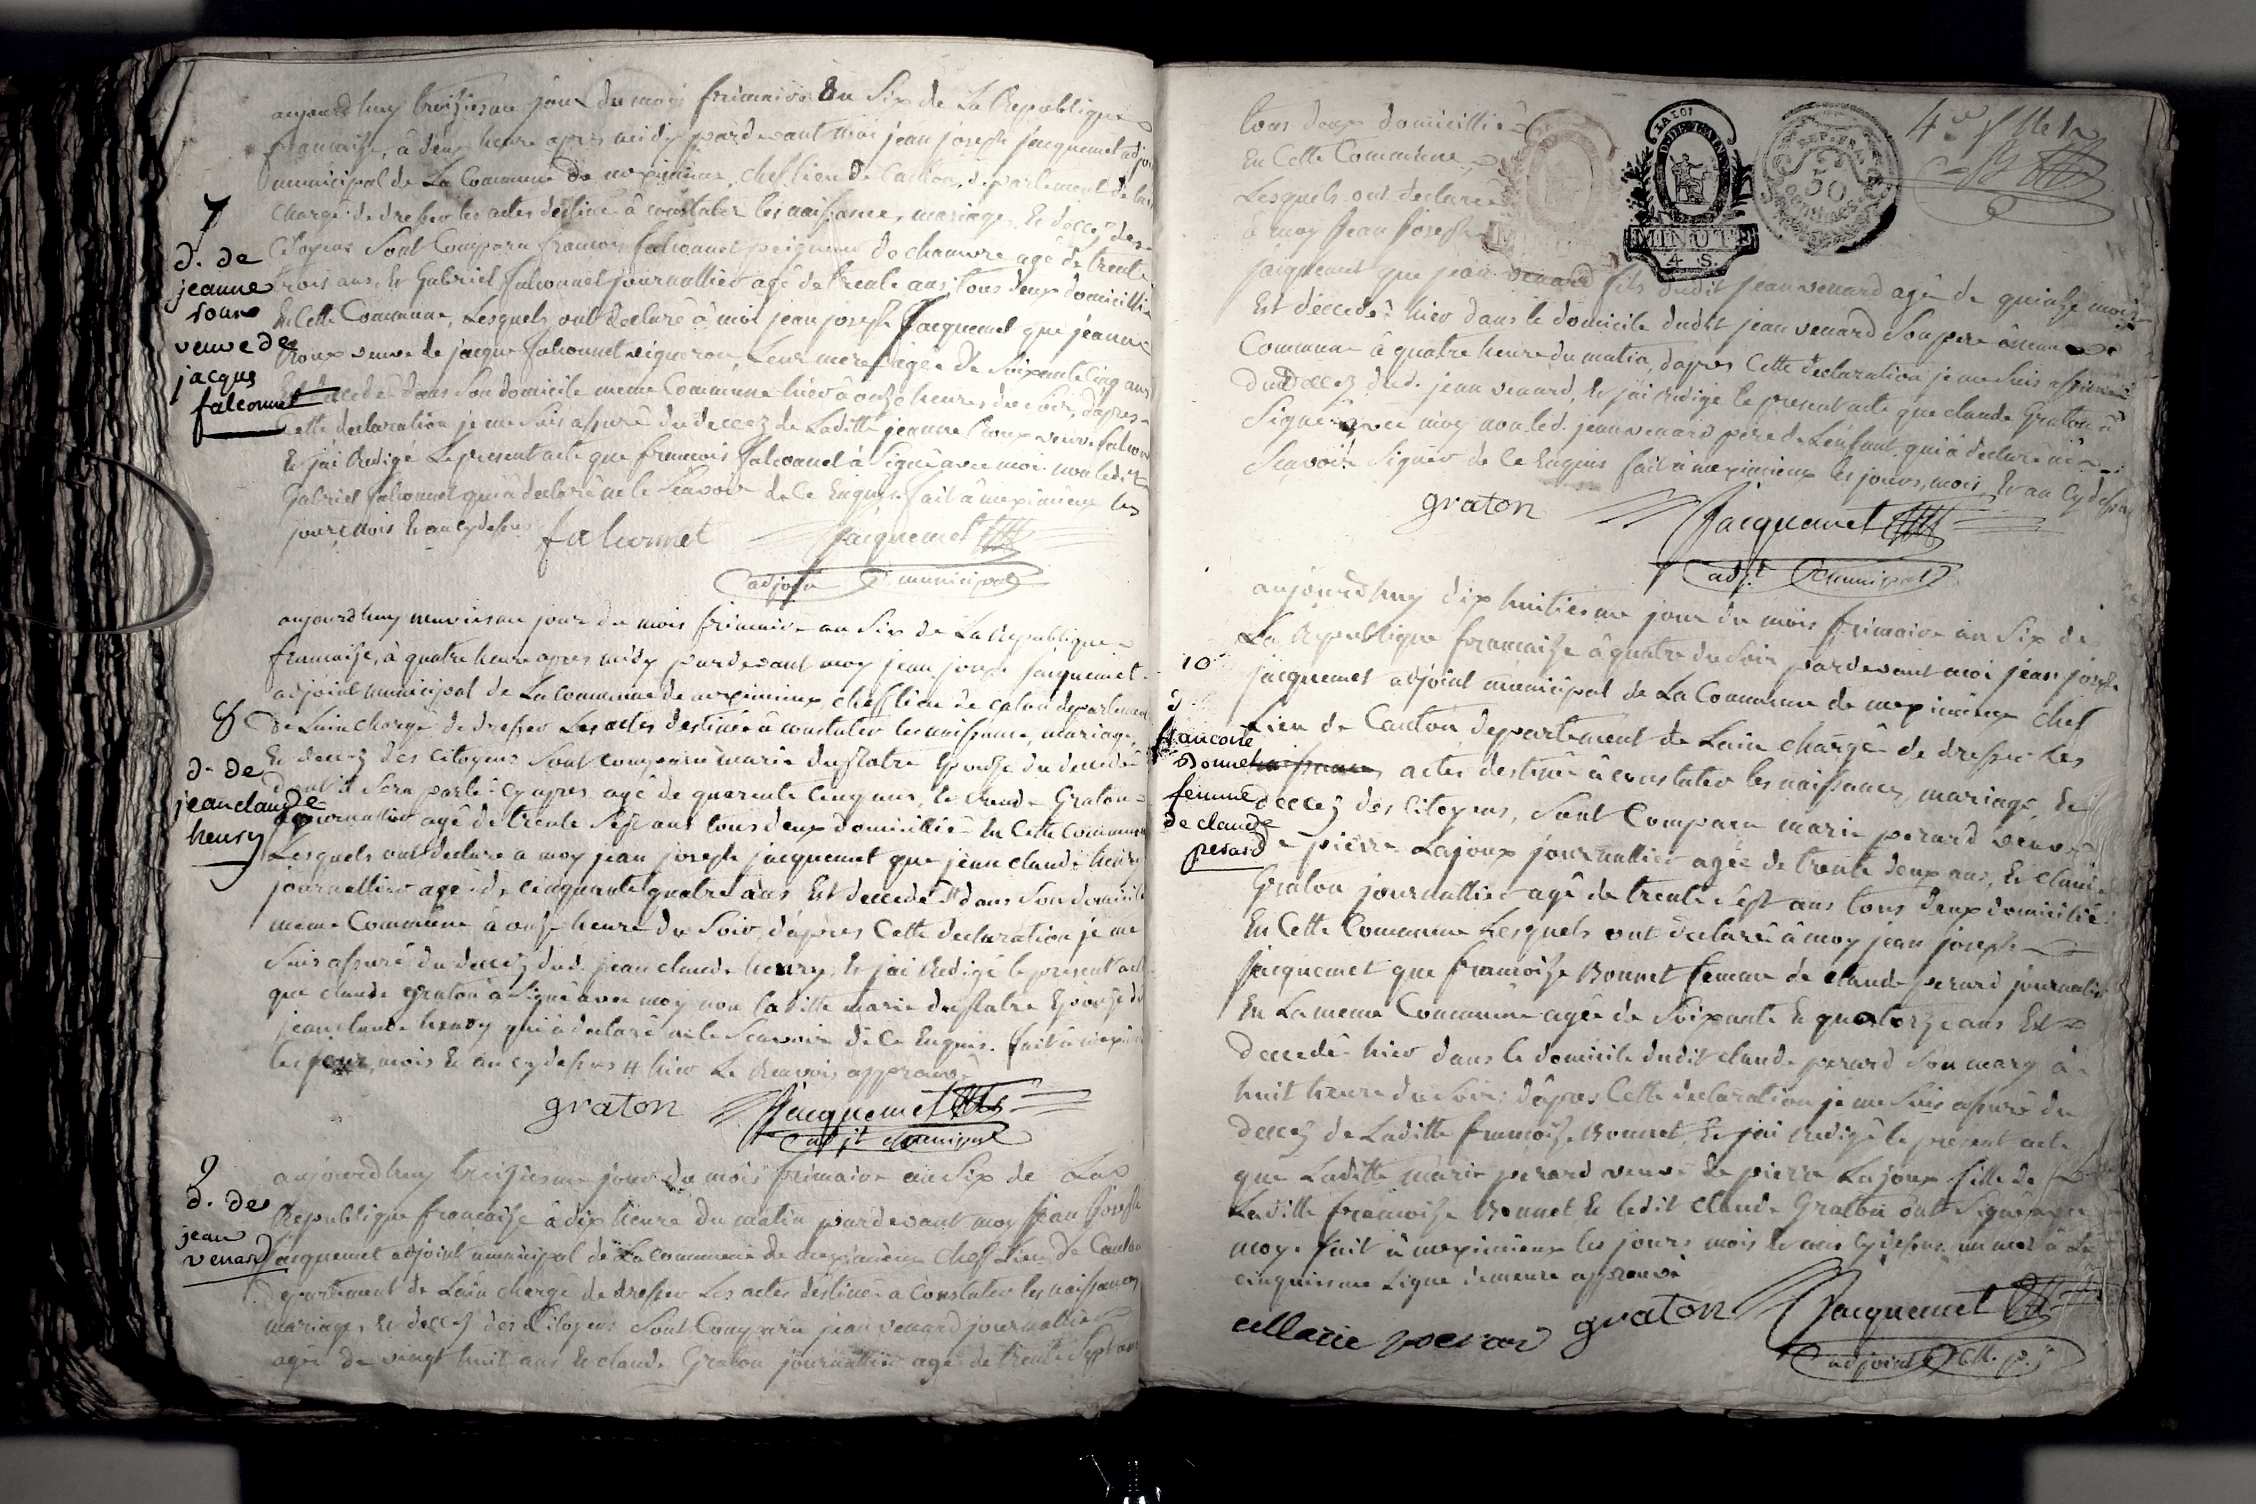 aujourd huy treizieme jour du mois frimaire an Six de La Republique
francaise, à deux heure apres midy pardevant moi jean joseph jacquemet adjoi
municipal de La Commune de meximieux, chef lieu de Canton, departement de lain
chargé de dresser les actes destiné à constater les naissances, mariages Et decez des
7
Citoyens Sont Comparu francois falconnet peigneur de chanvre agé de trente
d. de
jeanne
roux
veuve de
jacque
falconnet
trois ans, Et Gabriel falconnet journallier agé de trente ans tous deux domicillié
En Cette Commune, Lesquels ont declaré à moi jean joseph Jacquemet que jeanne
roux veuve de jacque falconnet vigneron, Leur mere agée de Soixante Cinq ans
Est decedé dans Son domicile meme Commune hier à onze heures du Soir, dapres
Cette declaration je me Suis assuré du decez de Laditte jeanne roux veuve falcon
Et jai Redigé Le present acte que francois falconnet à Signé avec moi non ledit
Gabriel falconnet qui à declaré ne le Scavoir de Ce Enquis. fait à meximieux les
jour, mois Et an cy dessus
falconnet
Jacquemet
adjoin municipal
aujourd huy neuvieme jour du mois frimaire an Six de La Republique
francaise, à quatre heure apres midy pardevant moy jean joseph jacquemet
adjoint municipal de La Commune de meximieux cheff lieu de Canton departement
8
de Lain chargé de dresser Les actes destinée à constater les naissance, mariage,
d. de
jean claude
henry
Et decez des Citoyens Sont comparu marie duflatre Epouse du decedé
dont il Sera parlé Cy apres agé de quarente Cinq ans, Et Claude Graton
journallier agé de trente Sept ans tous deux domicillié En Cette Commune
Lesquels ont declare a moy jean joseph jacquemet que jean claude henry
journallier agé de cinquante quatre ans Est decedé # dans Son domicile
meme Commune à onze heure du Soir, dapres Cette declaration je me
Suis assuré du decez dud. jean claude henry, Et jai Redigé le present acte
que claude graton à Signé avec moy non laditte marie duflatre Epouze du
jean claude henry qui à declaré ne le Scavoir de Ce Enquis. fait à meximieux
les jour, mois Et an cy dessus # hier Le Renvoi approuvé
graton
Jacquemet
adjt municipal
9
d. de
jean
venard
aujourd huy treizieme jour du mois frimaire an Six de La
Republique francaise à dix heure du matin pardevant moy Jean Joseph
Jacquemet adjoint municipal de La Commune de meximieux Cheff Lieu de Canton
departement de Lain chargé de dresser Les actes destinée à Constater les naissances
mariage, Et decez des Citoyens Sont Comparu jean venard journallier
agée de vingt huit ans Et claude Graton journallier agé de trente Sept ans
tous deux domicillié
En Cette Commune
Lesquels ont declaré
à moy Jean Joseph
LA LOI
MINUTE
4 S.
50
centimes
jacquemet que jean venard fils dudit jean venard agé de quinze mois
Est décedé hier dans le domicile dudit jean venard Son pere meme
Commune à quatre heure du matin, dapres Cette declaration je me Suis assuré
du decez dud. jean venard, Et jai redigé le present acte que claude Graton à
Signé avec moy non led. jean venard pere de Lenfant qui à declaré ne
Scavoir Signer de Ce Enquis fait à meximieux les jours, mois, Et an Cy dessus
graton
Jacquemet
adjt municipal
aujourd huy dix huitieme jour du mois frimaire an Six de
La Republique francaise à quatre du Soir pardevant moi jean joseph
10
jacquemet adjoint municipal de La Commune de meximieux chef
d
francoise
Bonnet
femme
de claude
perard
Lieu de Canton departement de Lain chargé de dresser Les
naissances actes destiné à constater les naissances, mariage, Et
decez des Citoyens, Sont Comparu marie perard veuve
de pierre Lajoux journallier agée de trente deux ans, Et claude
Graton journallier agé de trente sept ans tous deux domicilié
En Cette Commune Lesquels ont declaré à moy jean joseph
Jacquemet que francoise Bonnet femme de claude perard journallier
En La meme Commune agée de Soixante Et quatorze ans Est
decedé hier dans le domicile dudit claude perard Son mary à
huit heure du Soir: dapres Cette declaration je me Suis assuré du
decez de Laditte francoise Bonnet, Et jai Redigé le present acte
que Laditte marie perard veuve de pierre Lajoux fille de
Laditte francoise Bonnet Et ledit Claude Graton ont Signé avec
moy. fait à meximieux les jours mois Et an cy dessus un mot à La
cinquieme Ligne demeure approuvé
Marie perar
graton
Jacquemet
adjoint M. p.